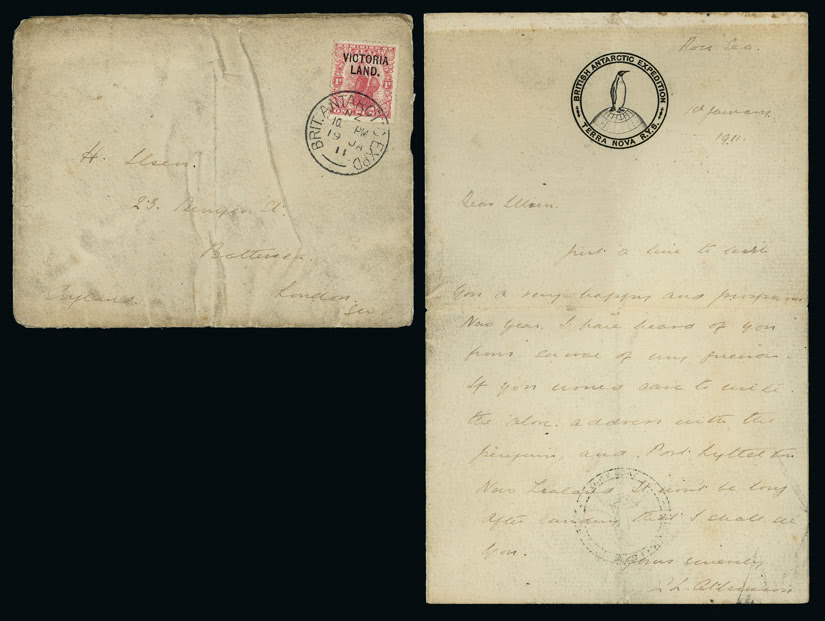 VICTORIA
LAND.
1d
1d
BRIT. ANTARCTIC EXPD.
10 PM
19 JA
11
H.
23
Battersea.
England.
London
SW
Ross Sea.
BRITISH ANTARCTIC EXPEDITION
TERRA NOVA R.Y.S.
January
1911.
Dear
Just a line to wish
you a very happy and prosperous
New Year. I have heard of you
from several of my friends.
If you would care to write
the above address with the
penguin, and Port Lyttelton
New Zealand. It won't be long
after landing that I shall see
you.
Yours sincerely
E. L. Atkinson